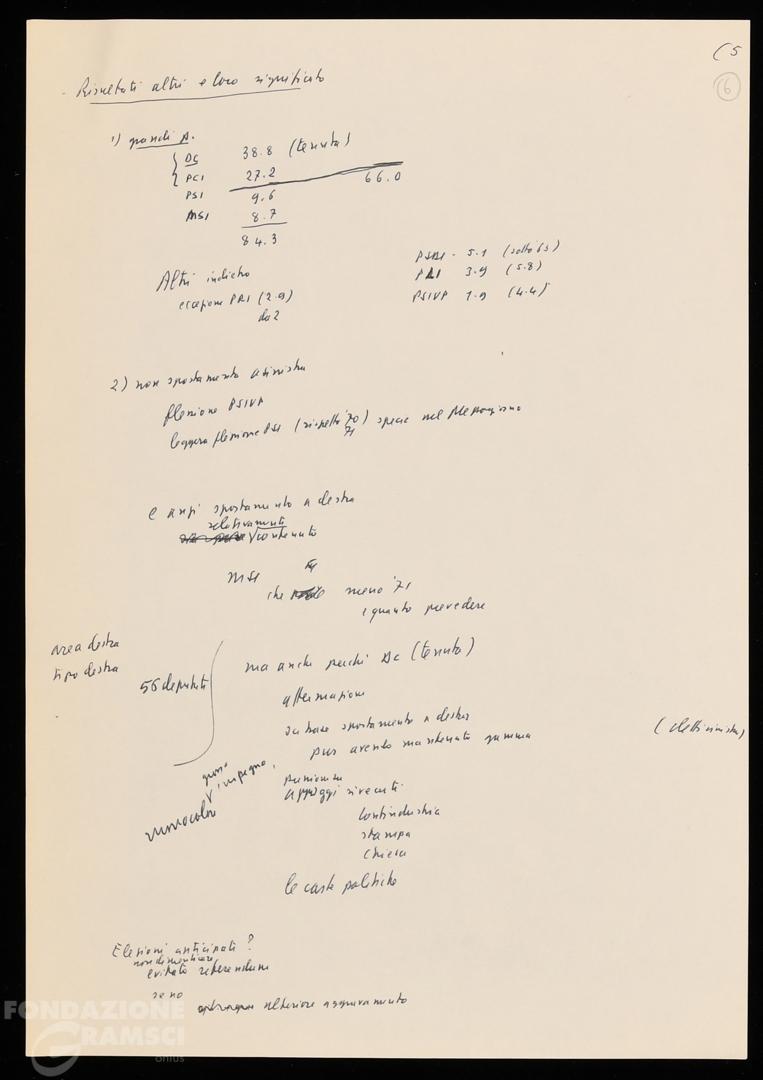 (5
6
- Risultati altri e loro significato
1) grandi p.
DC 38.8 (tenuta)
PCI 27.2 66.0
PSI 9.6
MSI 8.7
84.3
PSDI - 5.1 (sotto 63)
PLI 3.9 (5.8)
PSIUP 1.9 (4.4)
Altri indietro
eccezione PRI (2.9)
da 2
2) non spostamento a sinistra
flessione PSIUP
leggera flessione PSI (rispetto '70 71) specie nel Mezzogiorno
e anzi spostamento a destra
relativamente
contenuto
MSI
che meno '71
e quanto prevedere
area destra
tipo destra
56 deputati
ma anche perché DC (tenuta)
affermazione
su base spostamento a destra
pur avendo mantenuto gamma
(della sinistra)
impegno
monocolore
appoggi ricevuti
Confindustria
stampa
Chiesa
le carte politiche
Elezioni anticipate?
non dimenticare
evitato referendum
se no
ulteriore aggravamento
FONDAZIONE
GRAMSCI
onlus